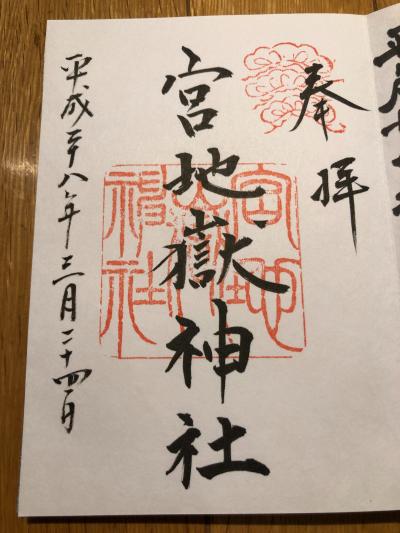 奉拝
宮地嶽神社
宮地嶽神社
平成二十八年三月二十四日